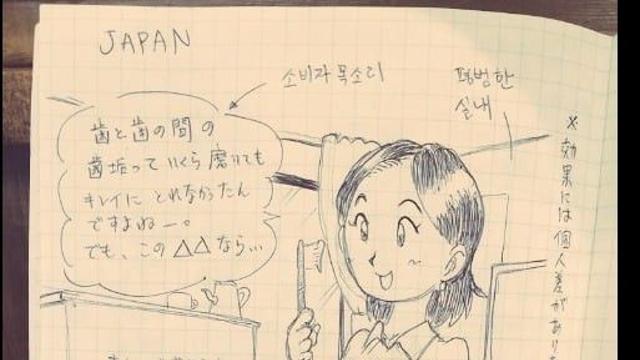 JAPAN
소비자 목소리
평범한
실내
歯と歯の間の
歯垢っていくら磨いても
キレイに とれなかったん
ですよねー。
でも、この△△なら…
※効果には個人差があり